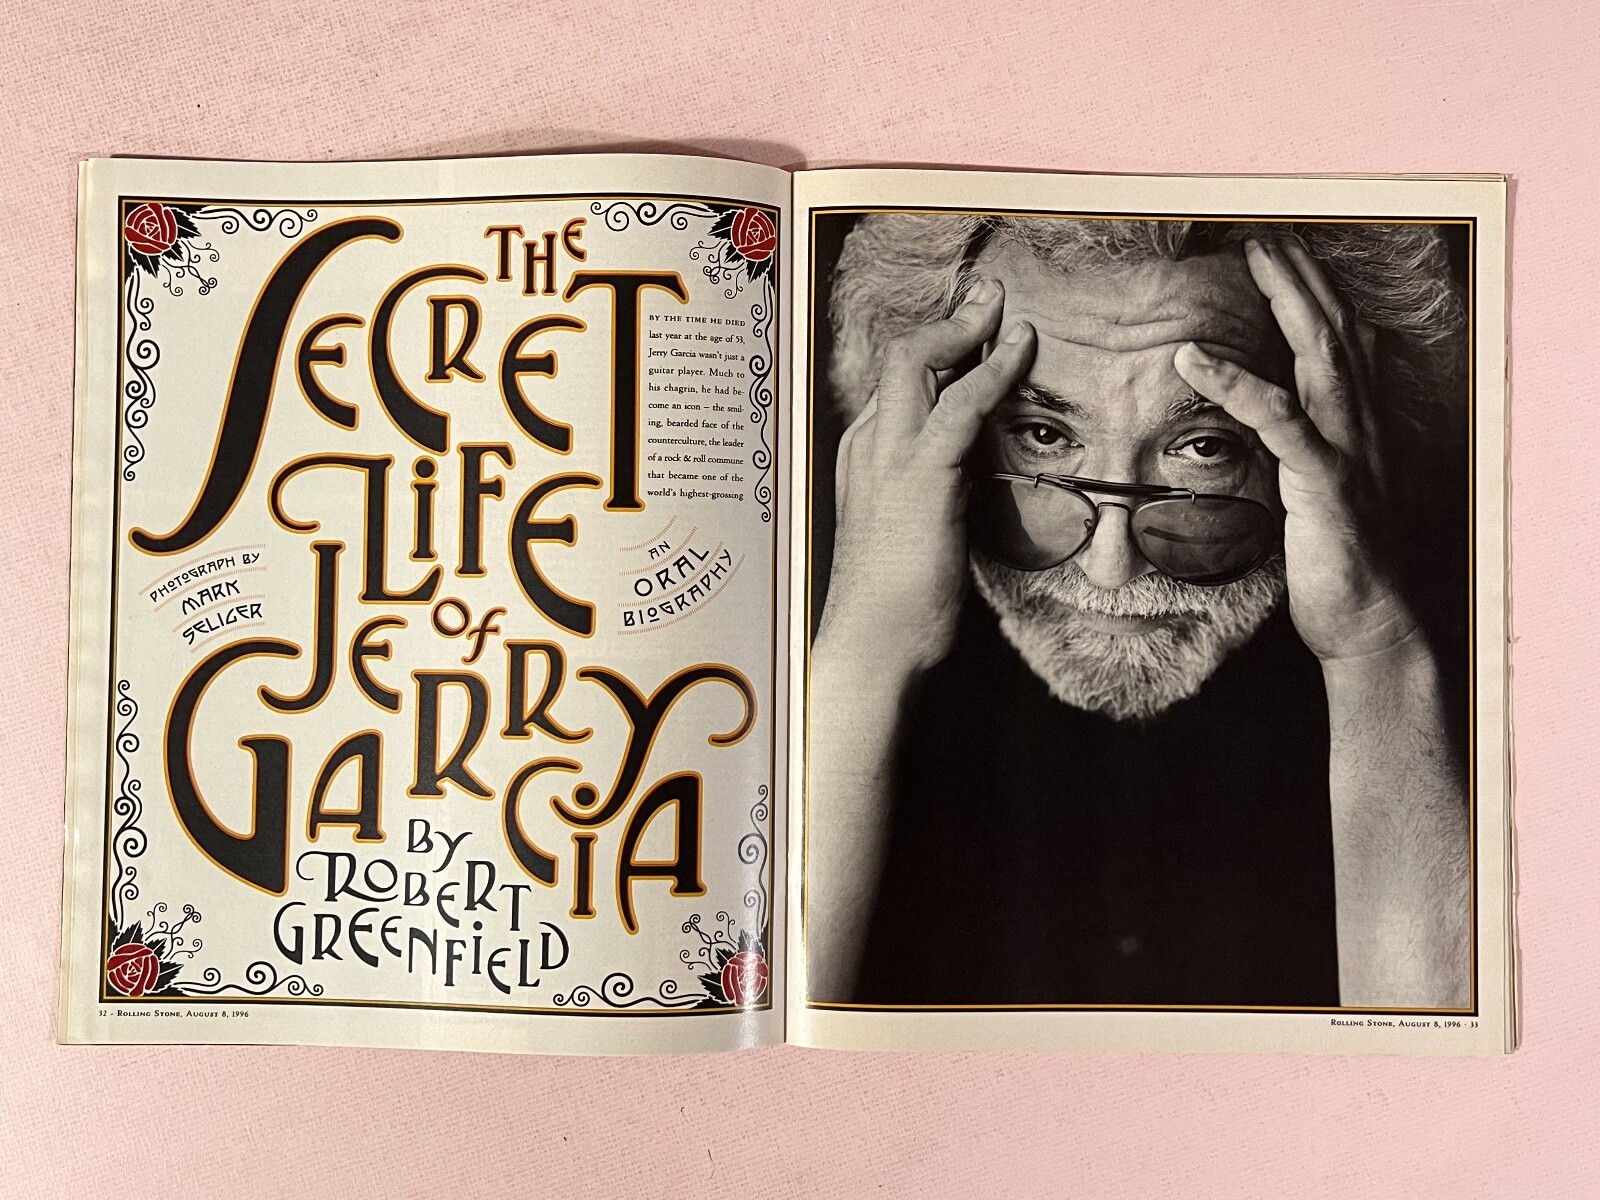 THE
SECRET
LIFE
of
JERRY
GARCIA
BY THE TIME HE DIED
last year at the age of 53,
Jerry Garcia wasn't just a
guitar player. Much to
his chagrin, he had be-
come an icon – the smil-
ing, bearded face of the
counterculture, the leader
of a rock & roll commune
that became one of the
world's highest-grossing
PHOTOGRAPH BY
MARK
SELIGER
AN
ORAL
BIOGRAPHY
BY
ROBERT
GREENFIELD
32 - ROLLING STONE, AUGUST 8, 1996
ROLLING STONE, AUGUST 8, 1996 - 33